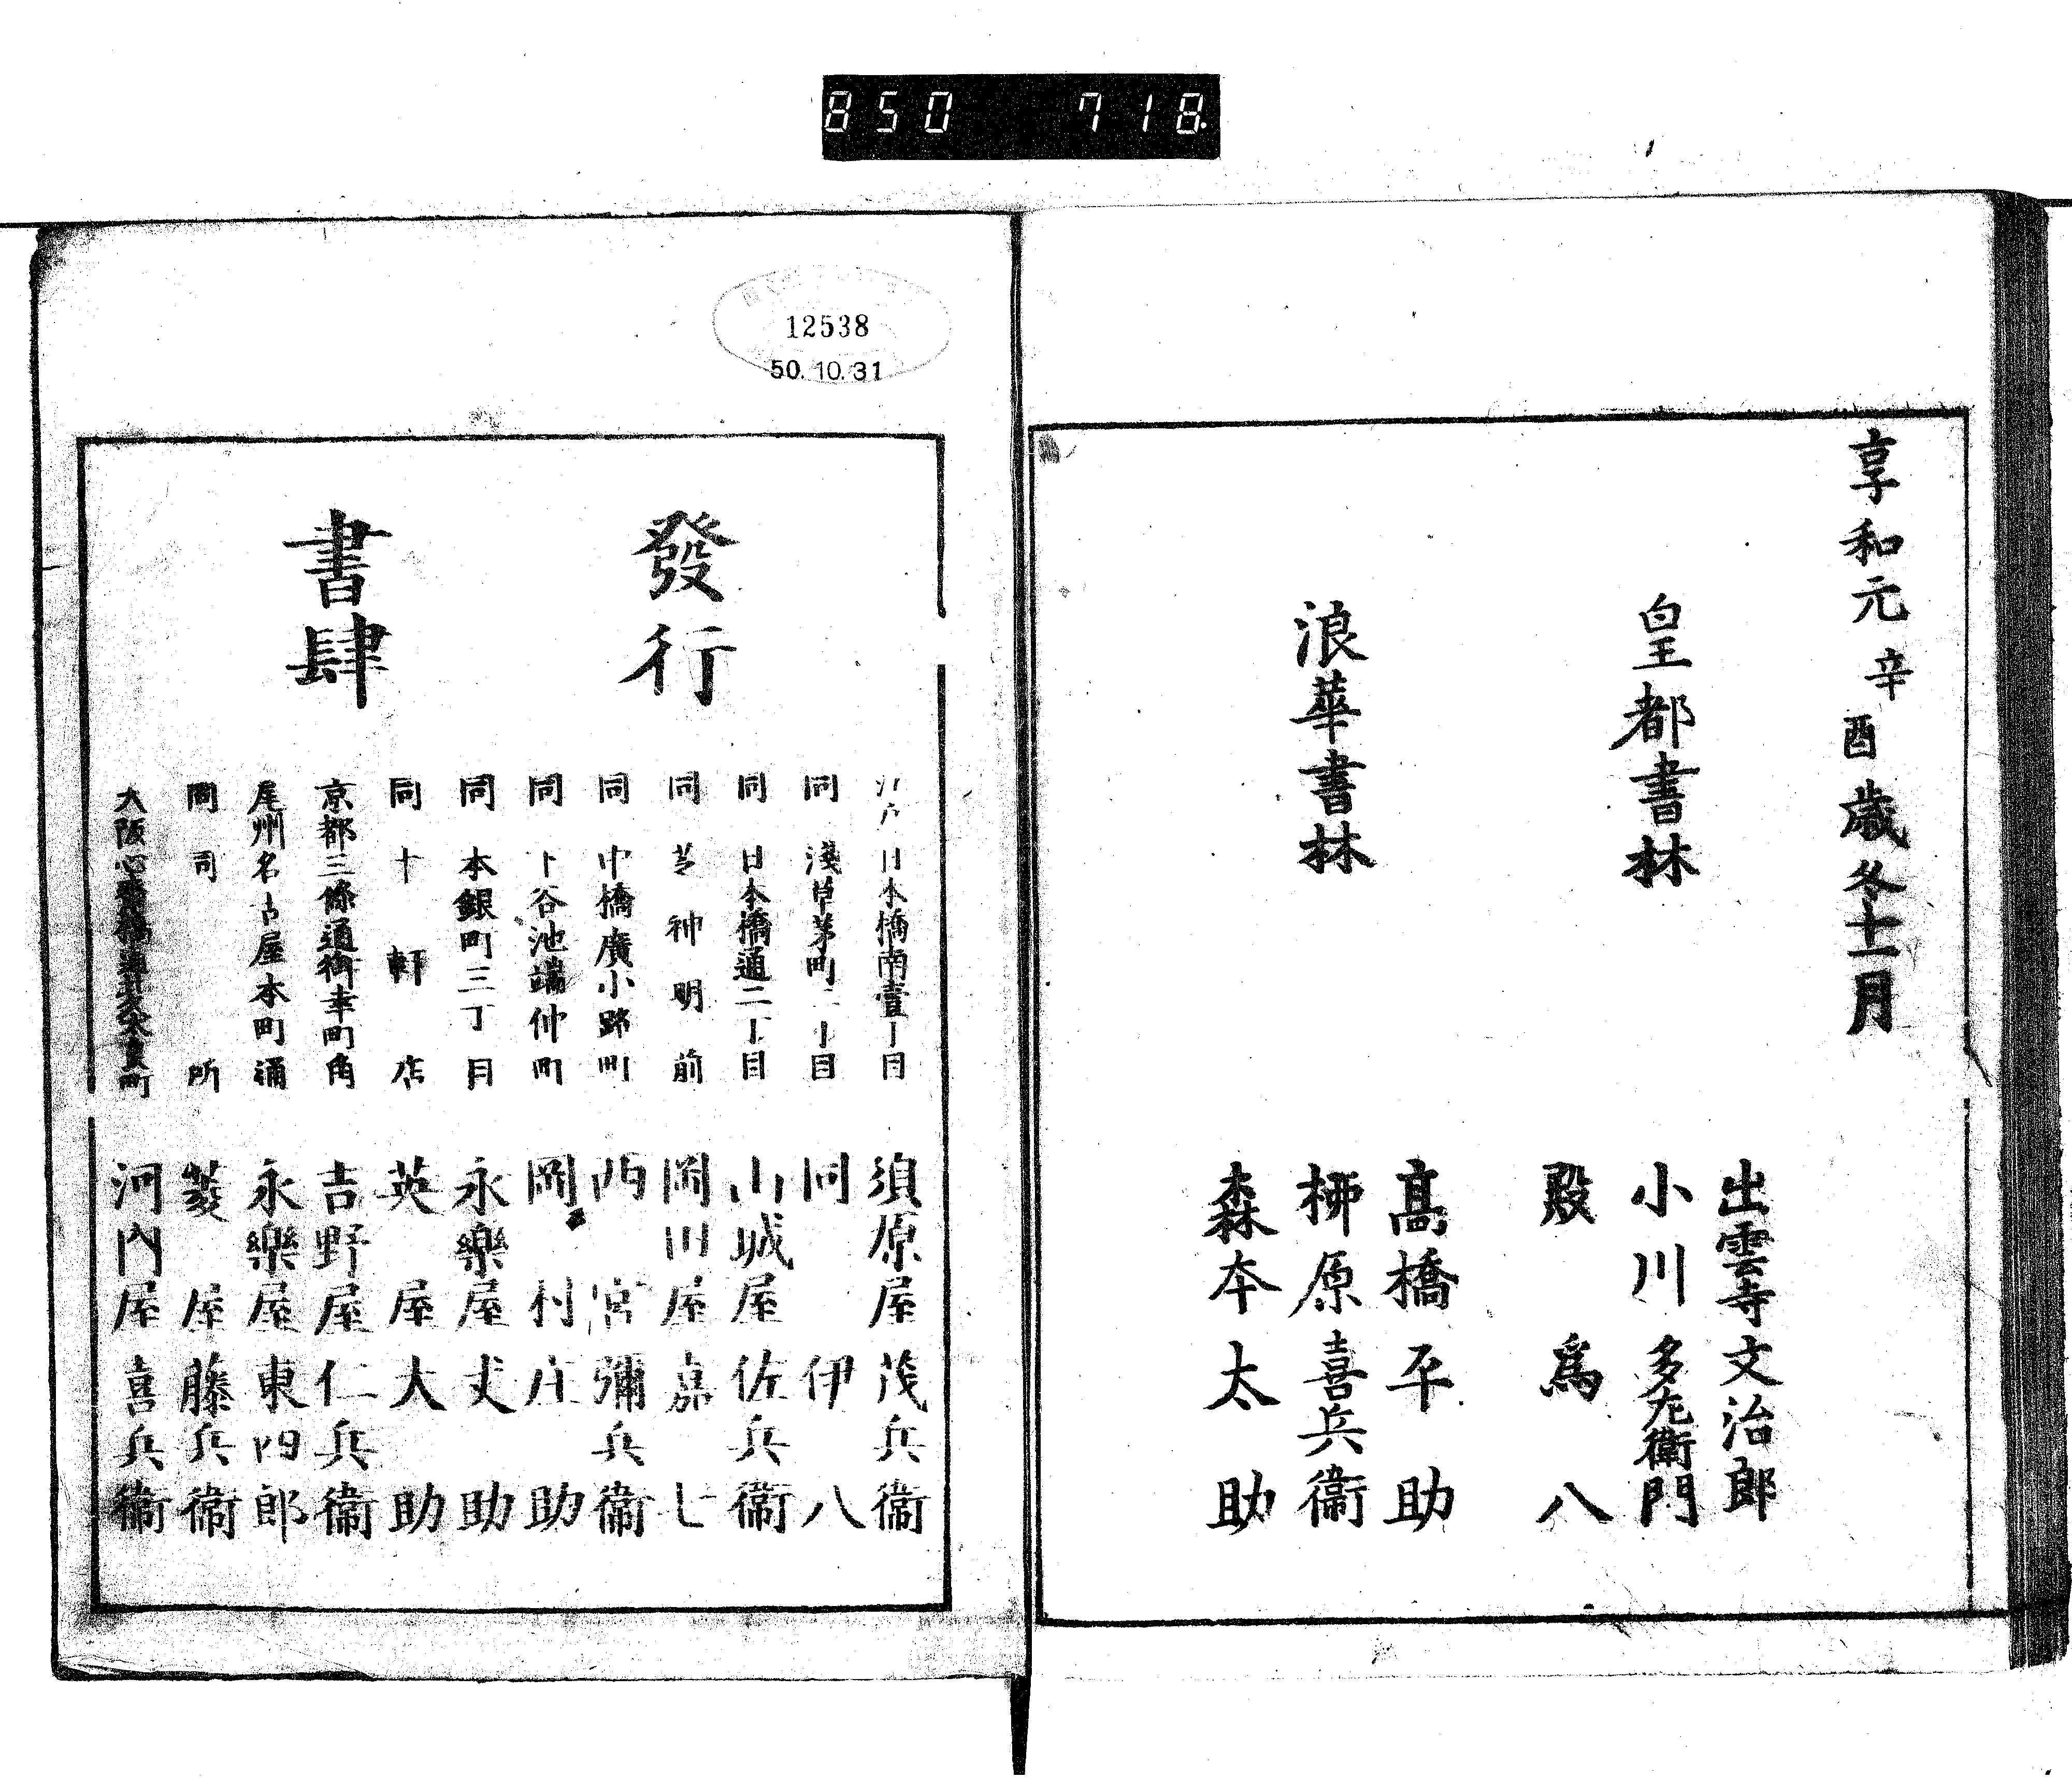 850 718.
享和元辛酉歳冬十一月
皇都書林
出雲寺文治郎
小川多左衛門
殿為八
浪華書林
髙橋平助
柳原喜兵衞
森本太助
12538
50.10.31
發行
書肆
江戸日本橋南壹丁目 須原屋茂兵衞
同淺草茅町二丁目 同伊八
同日本橋通二丁目 山城屋佐兵衞
同芝神明前 岡田屋嘉七
同中橋廣小路町 西宮彌兵衞
同下谷池端仲町 岡村庄助
同本銀町三丁目 永樂屋丈助
同十軒店 英屋大助
京都三條通御幸町角 吉野屋仁兵衞
尾州名古屋本町通 永樂屋東四郎
同所 菱屋藤兵衞
大阪心齋橋通北久太良町 河内屋喜兵衞